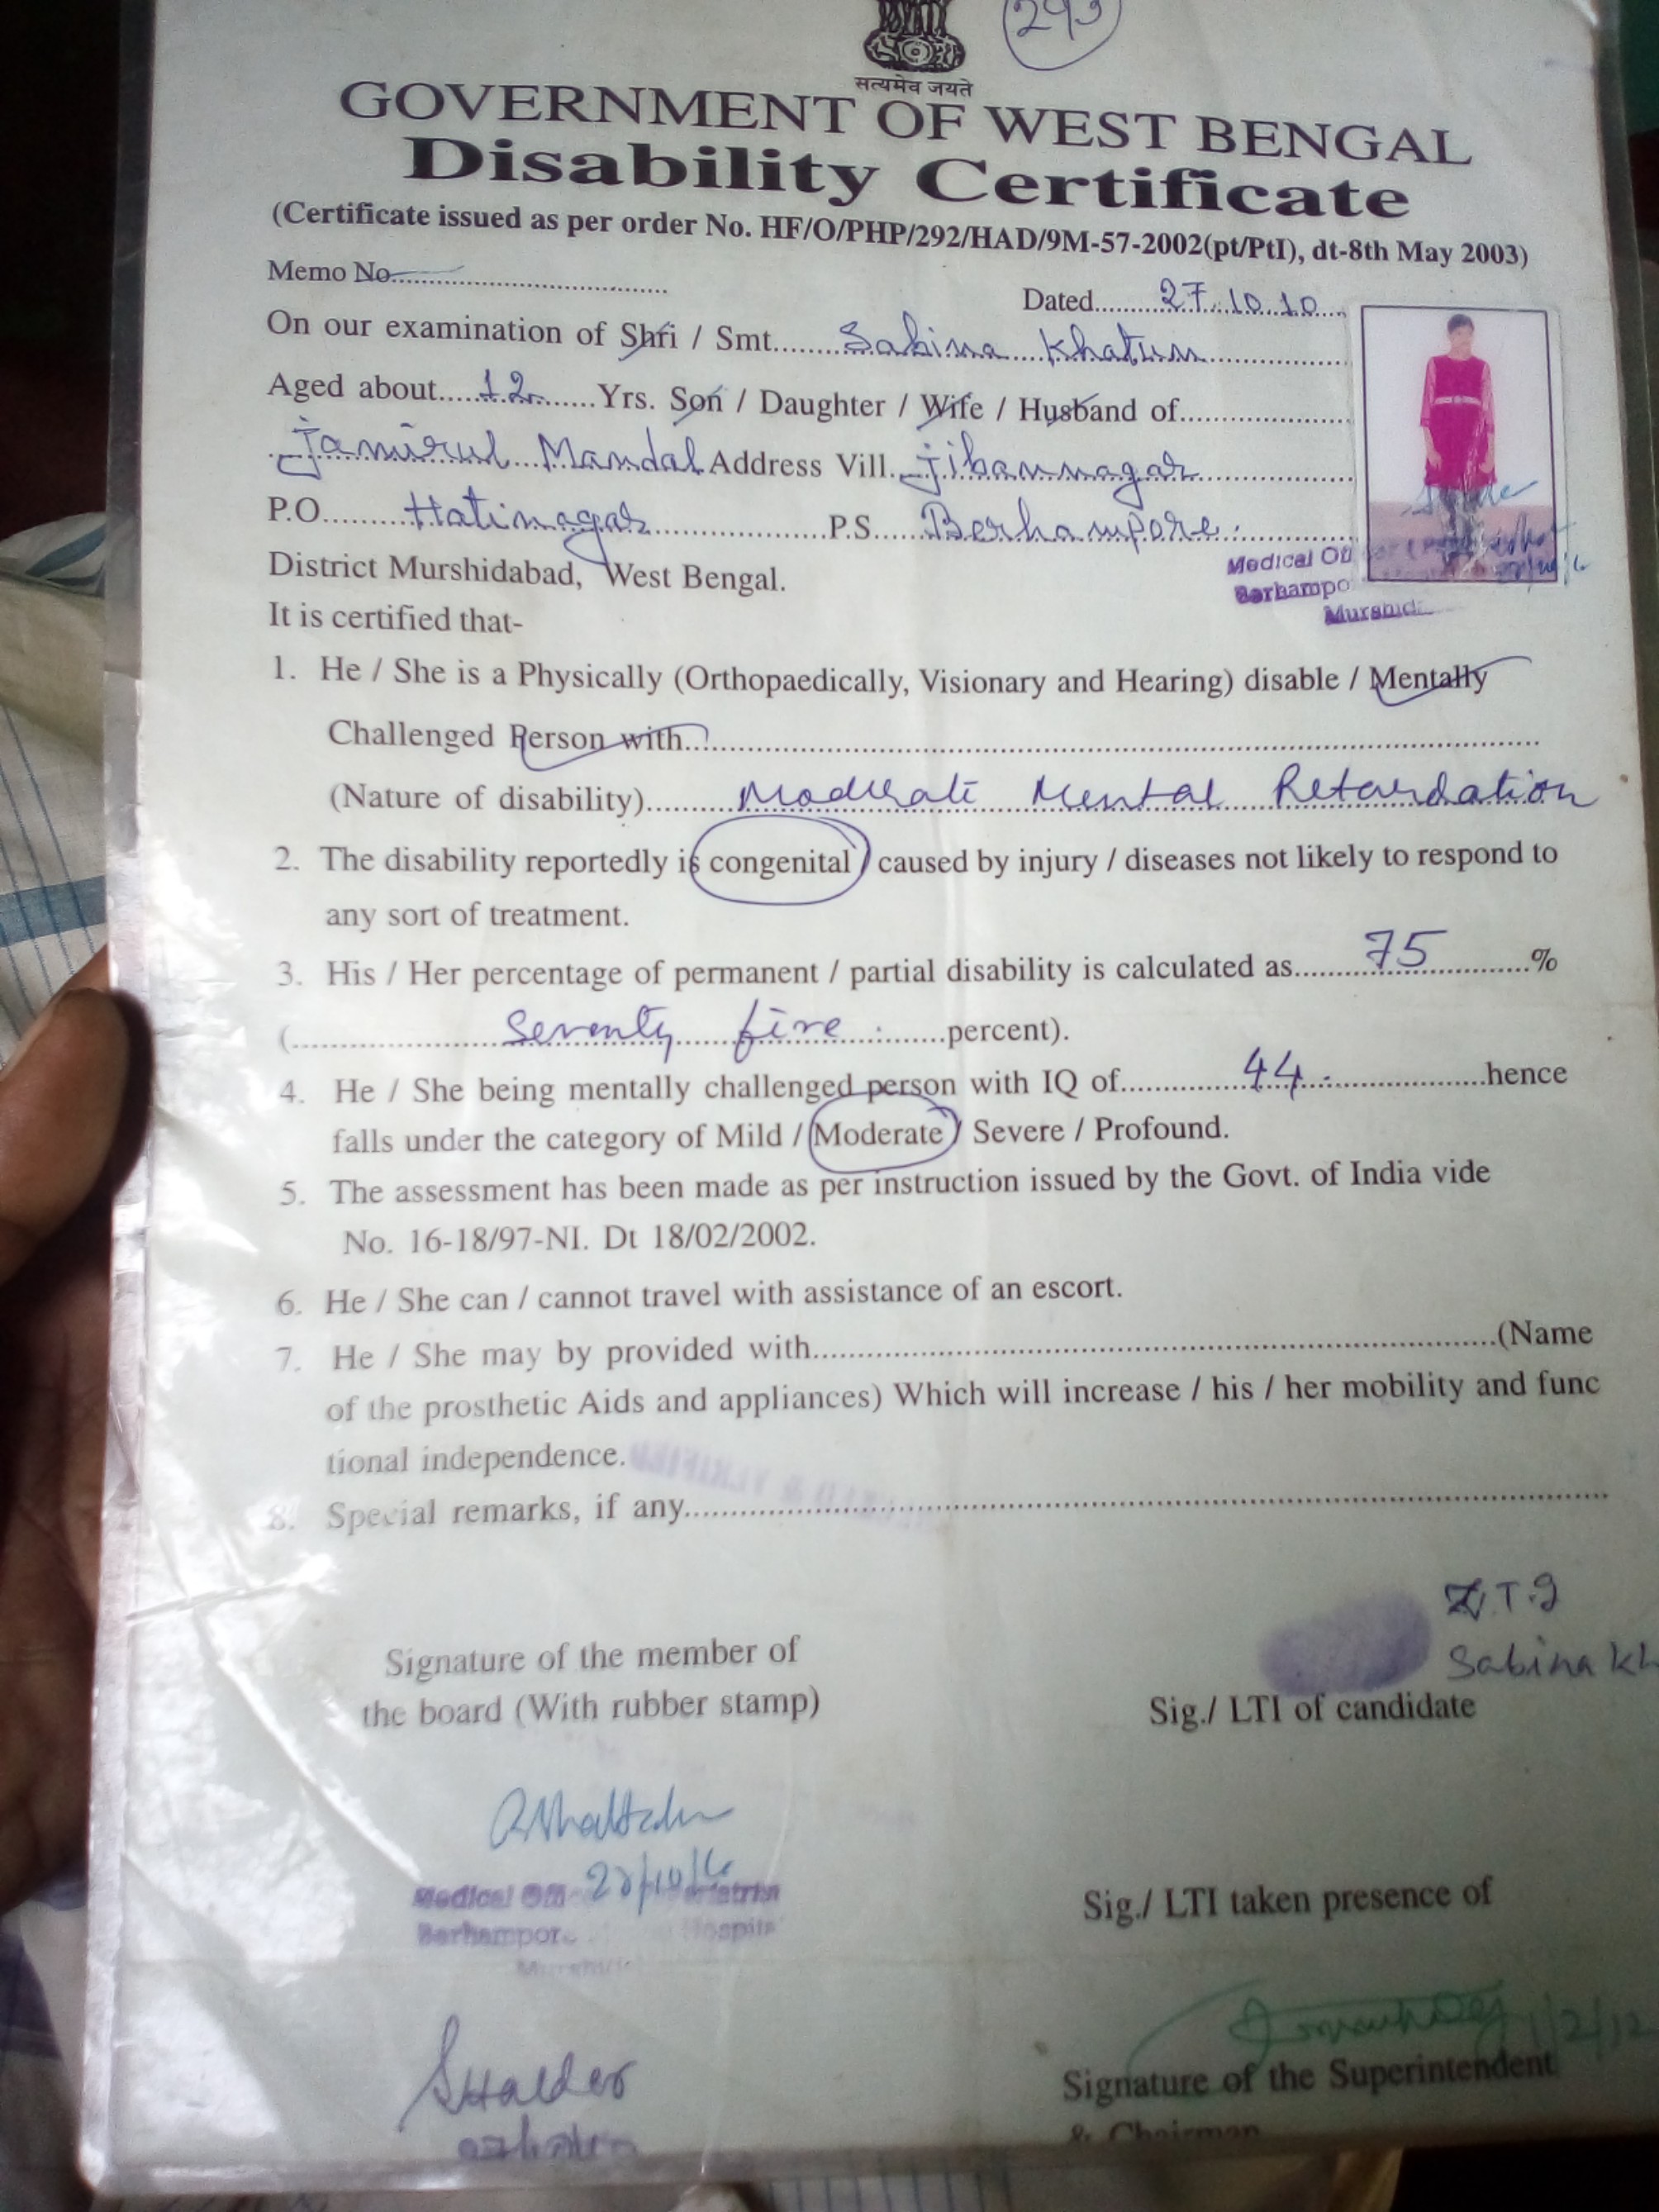 293
सत्यमेव जयते
GOVERNMENT OF WEST BENGAL
Disability Certificate
(Certificate issued as per order No. HF/O/PHP/292/HAD/9M-57-2002(pt/PtI), dt-8th May 2003)
Memo No.
Dated 27.10.10
On our examination of Shri / Smt. Sabina Khatun
Aged about 12 Yrs. Son / Daughter / Wife / Husband of
jamirul Mandal Address Vill. jibannagar
P.O. Hatinagar P.S. Berhampore.
Medical
Berhampo
District Murshidabad, West Bengal.
It is certified that-
1. He / She is a Physically (Orthopaedically, Visionary and Hearing) disable / Mentally
Challenged Person with
(Nature of disability) Moderate Mental Retardation
2. The disability reportedly is congenital / caused by injury / diseases not likely to respond to
any sort of treatment.
3. His / Her percentage of permanent / partial disability is calculated as 75 %
( Seventy five percent).
4. He / She being mentally challenged person with IQ of 44 hence
falls under the category of Mild / Moderate / Severe / Profound.
5. The assessment has been made as per instruction issued by the Govt. of India vide
No. 16-18/97-NI. Dt 18/02/2002.
6. He / She can / cannot travel with assistance of an escort.
7. He / She may by provided with (Name
of the prosthetic Aids and appliances) Which will increase / his / her mobility and func
tional independence.
8. Special remarks, if any
Sabina kh
Signature of the member of
the board (With rubber stamp)
Sig./ LTI of candidate
Medical
Berhampor
Hospital
Sig./ LTI taken presence of
SHalder
Signature of the Superintendent
& Chairman